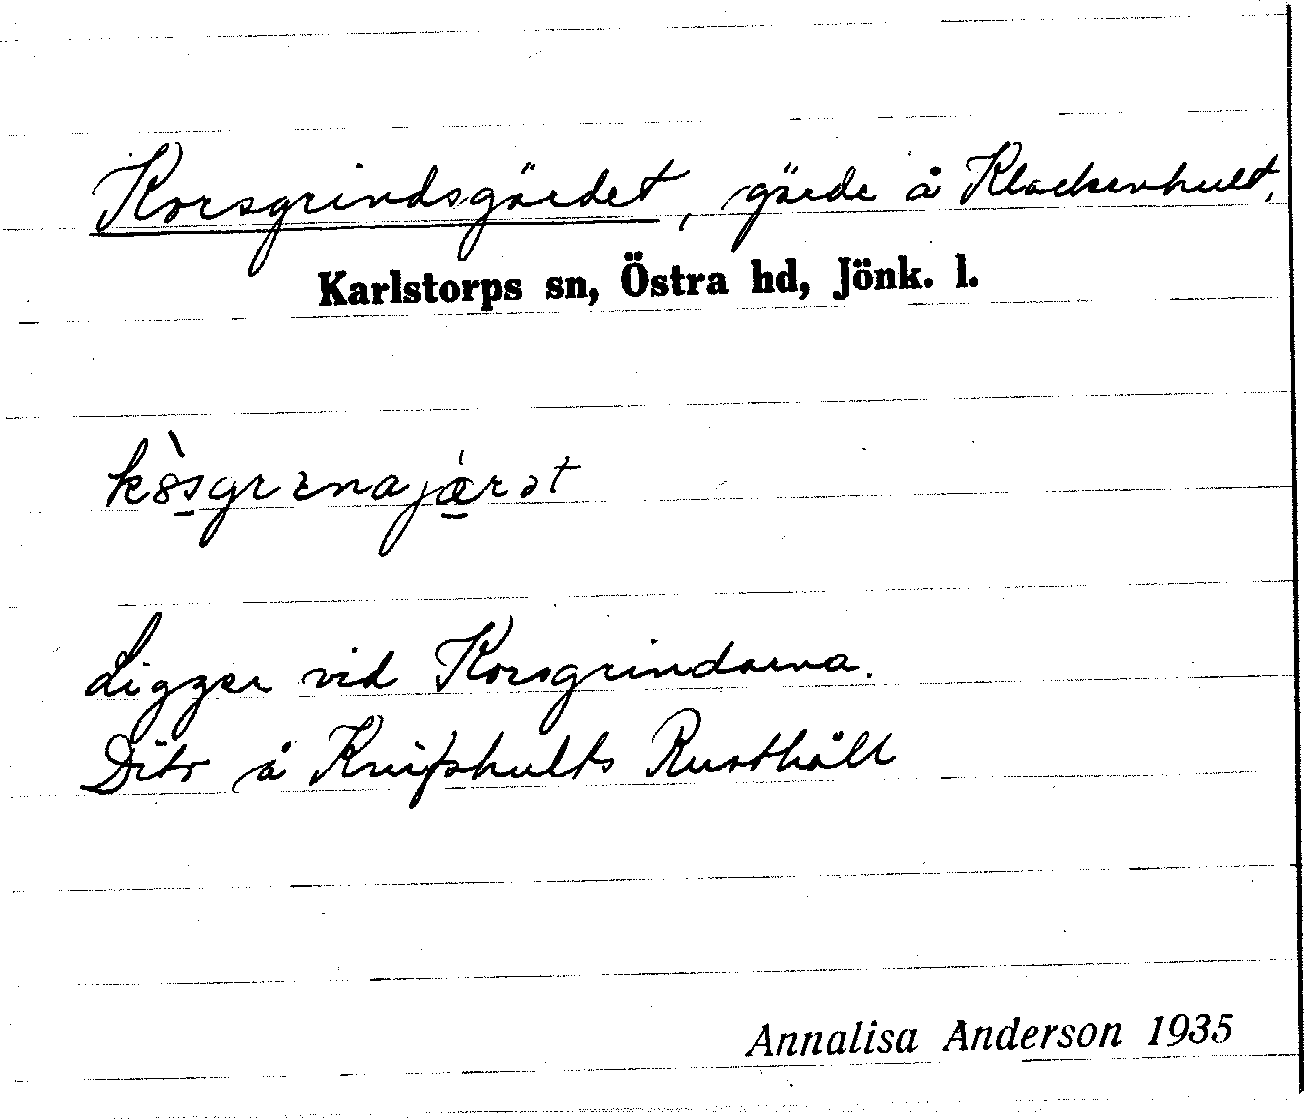 Korsgrindsgärdet, gärde å Klackenhult,
Karlstorps sn, Östra hd, Jönk. l.
Ligger vid Korsgrindarna.
Dito å Knifshults Rusthåll
Annalisa Anderson 1935